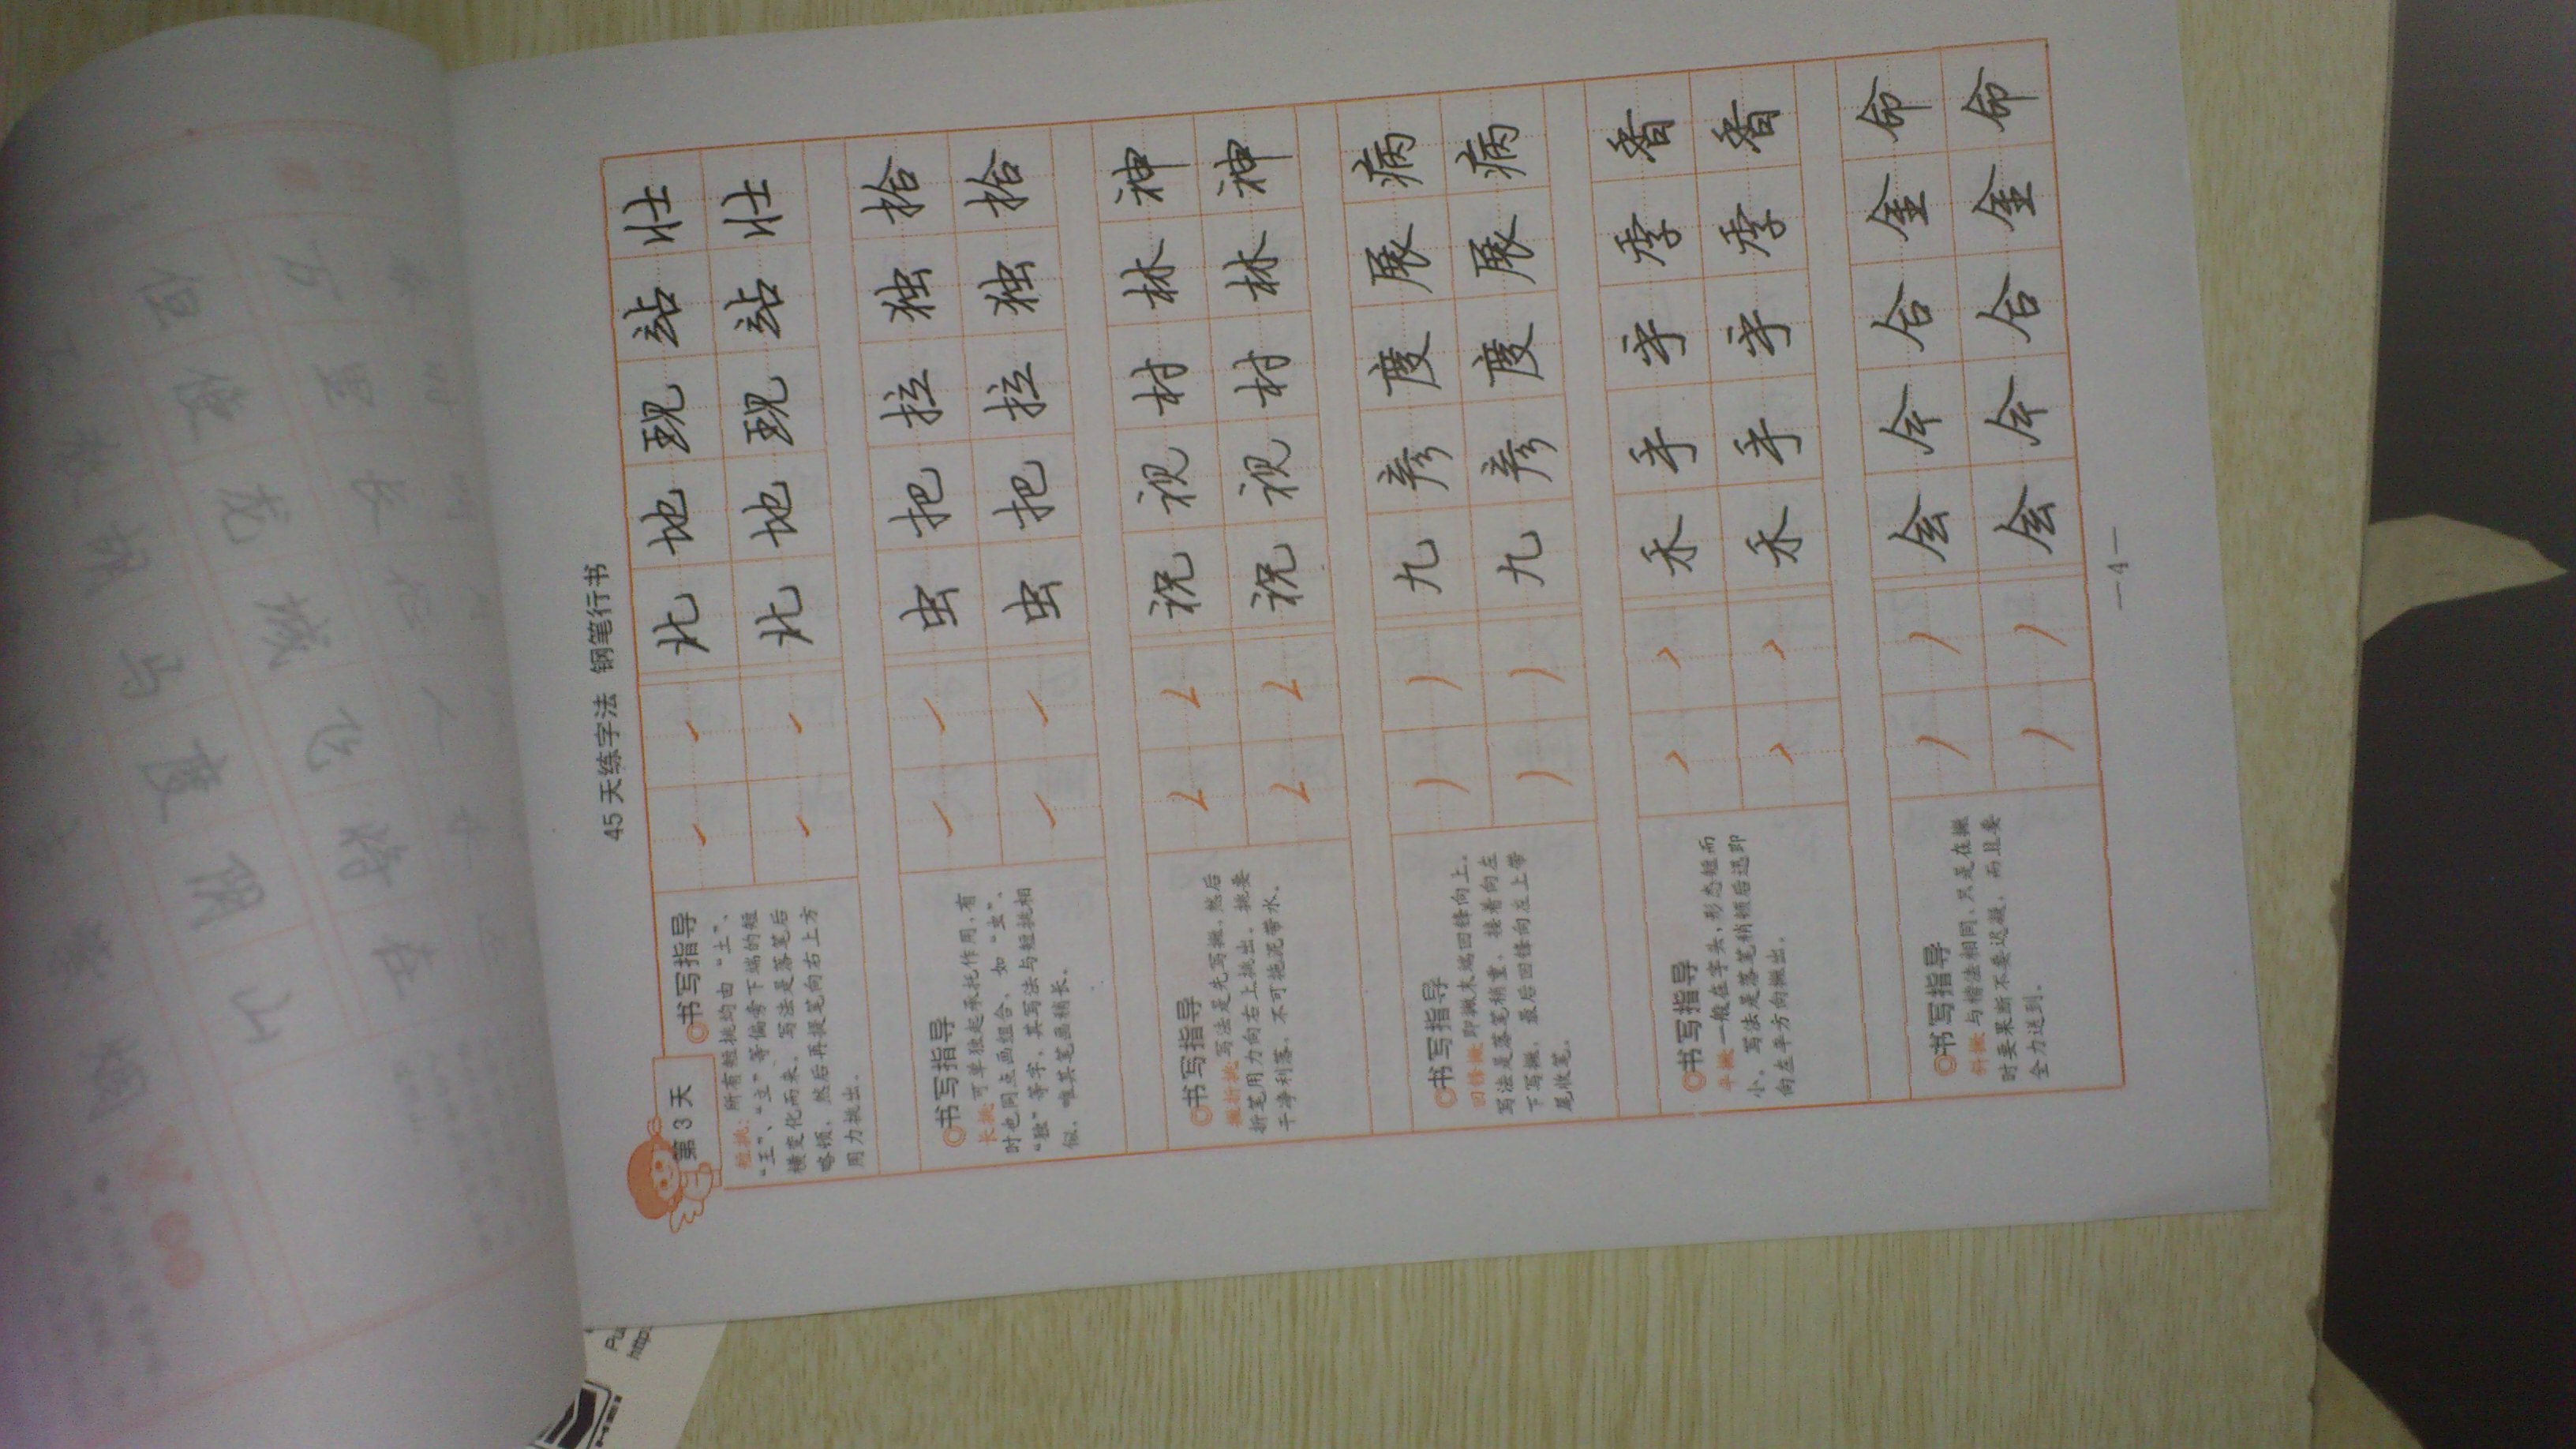 45天练字法 钢笔行书
第3天
◎书写指导
短挑:所有短挑均由“土”、
“王”、“立”等偏旁下端的短
横变化而来。写法是落笔后
略顿,然后再提笔向右上方
用力挑出。
北 地 现 站 壮
北 地 现 站 壮
◎书写指导
长挑 可单独起承托作用,有
时也同点画组合、如“虫”、
“独”等字,其写法与短挑相
似,唯其笔画稍长。
虫 把 拉 独 拾
虫 把 拉 独 拾
◎书写指导
撇折挑 写法是先写撇,然后
折笔用力向右上挑出。挑要
干净利落,不可拖泥带水。
祝 视 村 林 神
祝 视 村 林 神
◎书写指导
回锋撇 即撇末端回锋向上。
写法是落笔稍重、接着向左
下写撇,最后回锋向左上带
尾收笔。
九 彦 度 展 病
九 彦 度 展 病
◎书写指导
平撇 一般在字头,形态短而
小。写法是落笔稍顿后迅即
向左平方向撇出。
禾 手 乎 季 香
禾 手 乎 季 香
◎书写指导
斜撇 与楷法相同,只是在撇
时要果断不要迟疑,而且要
全力送到。
会 今 合 金 命
会 今 合 金 命
—4—